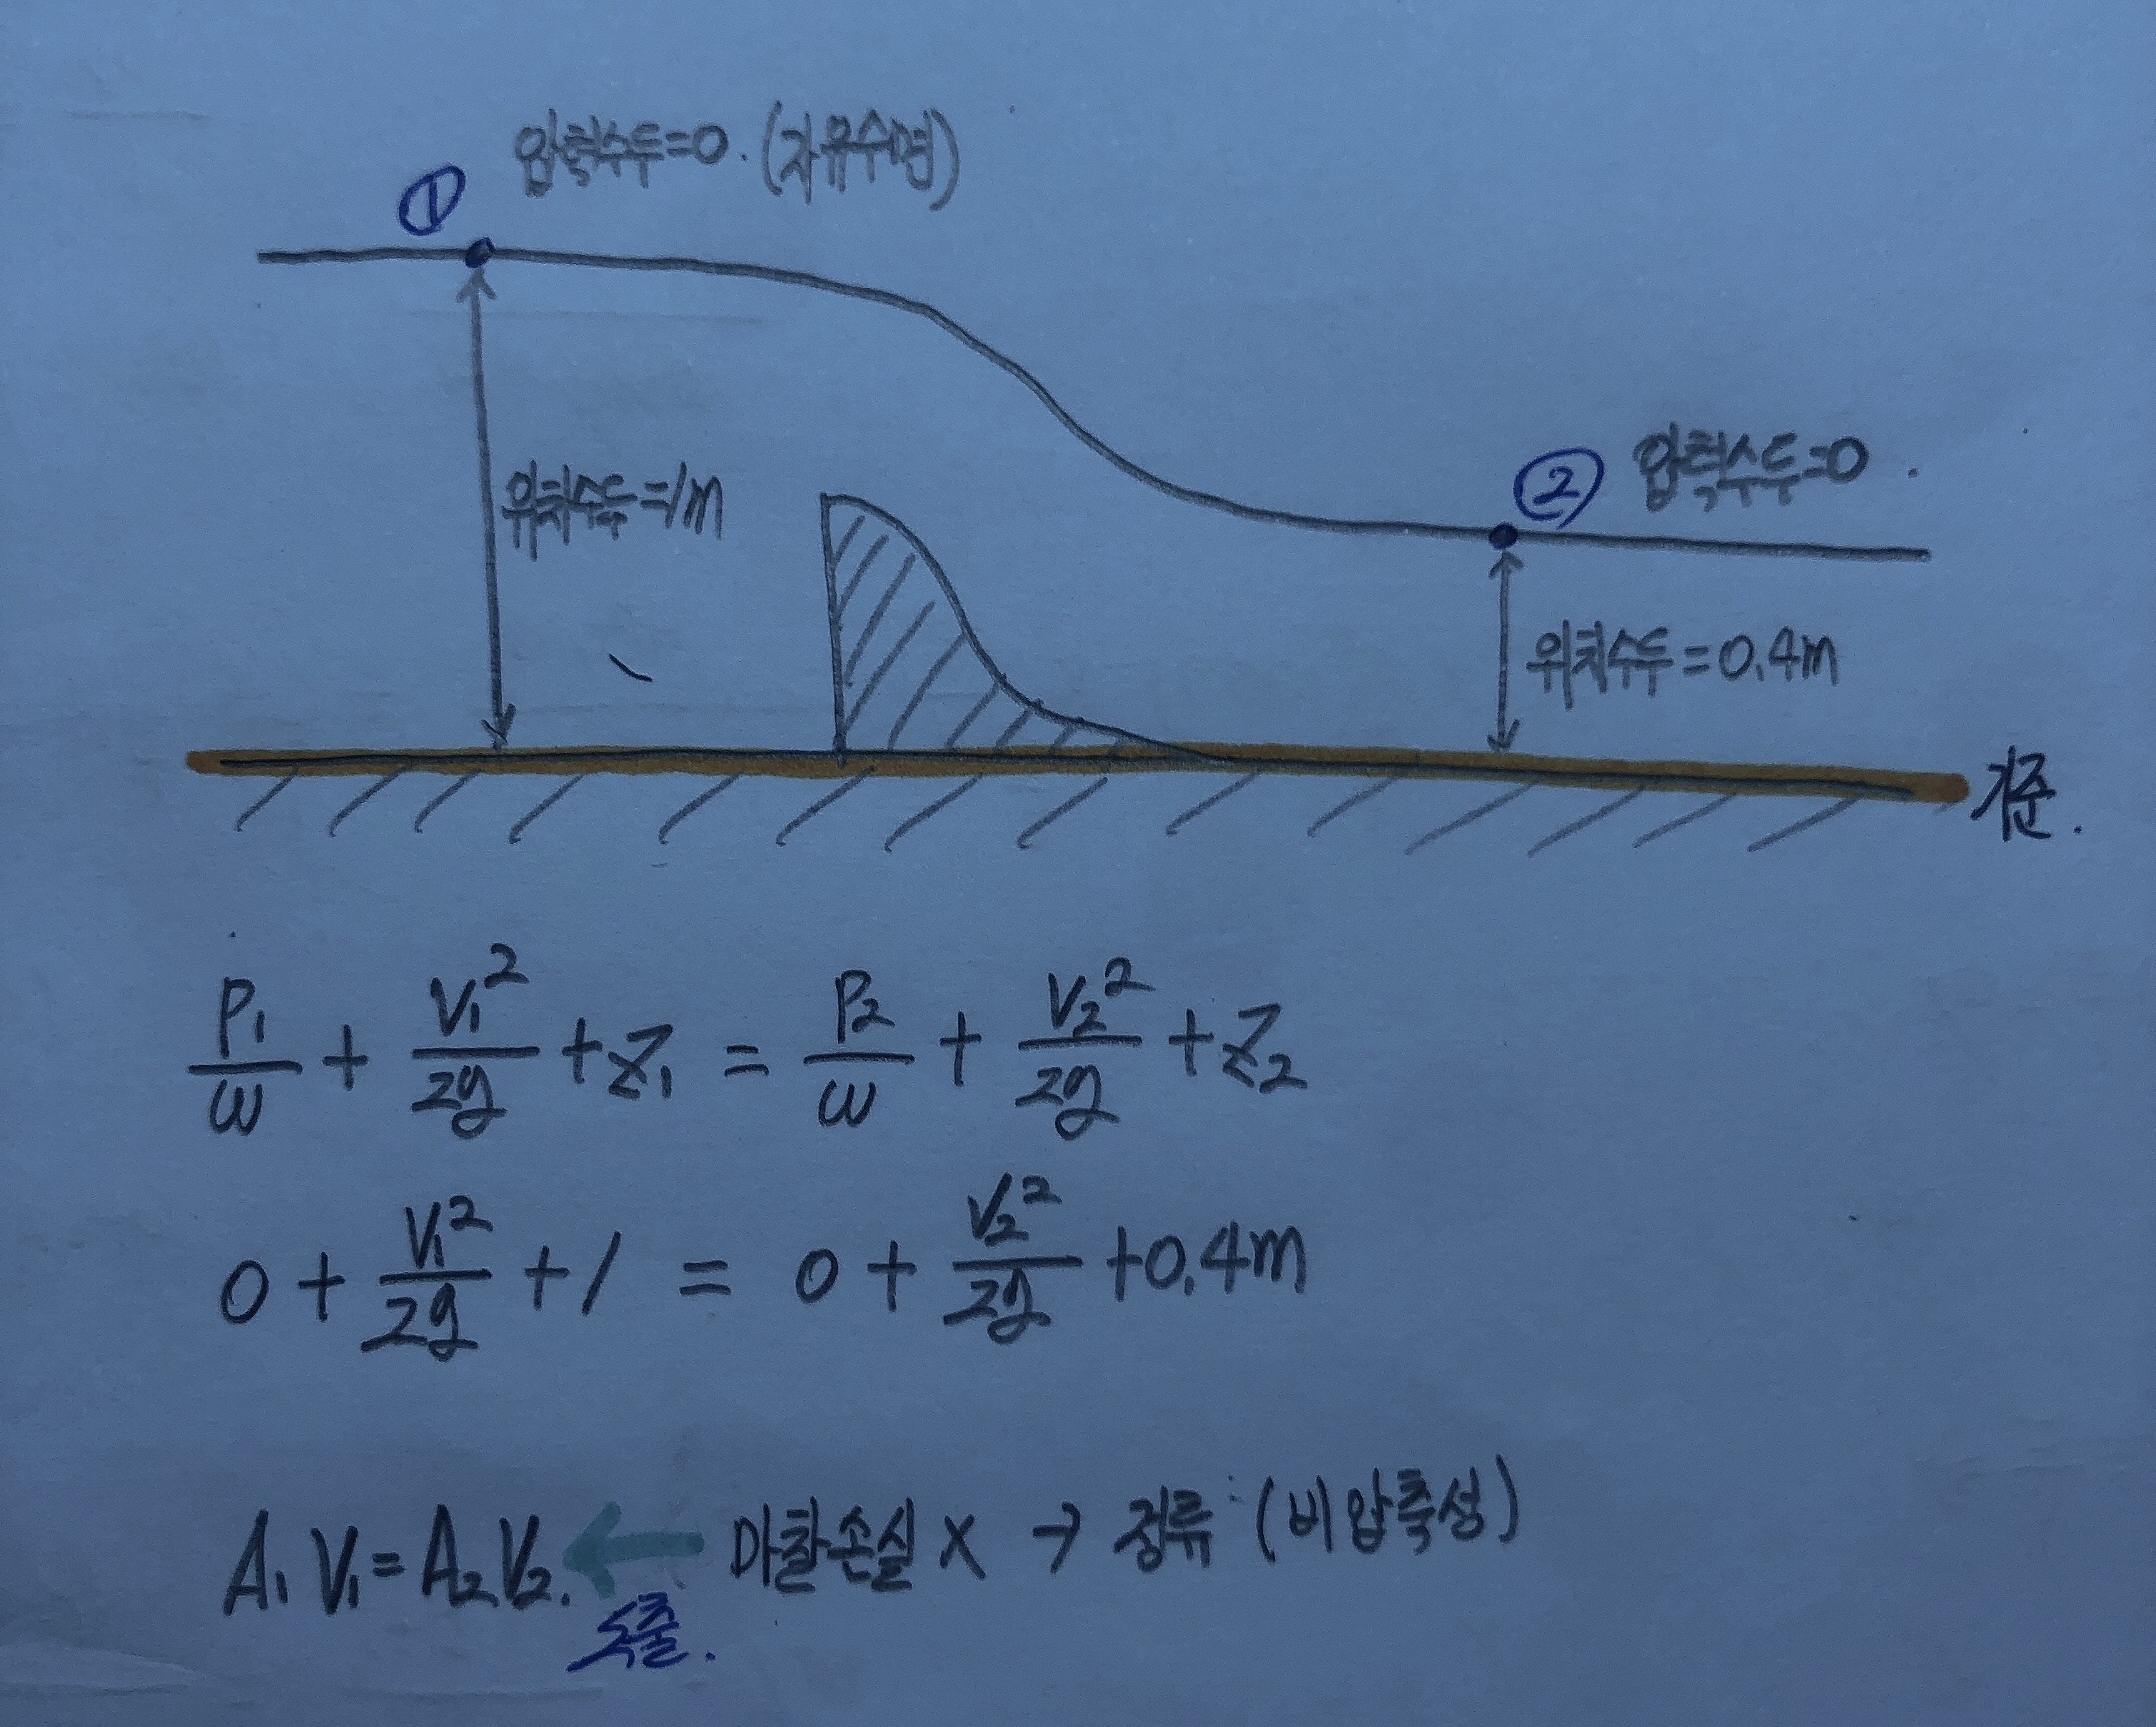 압력수두=0. (자유수면)
①
위치수두=1m
② 압력수두=0.
위치수두=0.4m
기준.
P₁/ω + V₁²/2g + Z₁ = P₂/ω + V₂²/2g + Z₂
0 + V₁²/2g + 1 = 0 + V₂²/2g + 0.4m
A₁V₁=A₂V₂. ← 마찰손실 X → 정류 (비압축성)
도출.